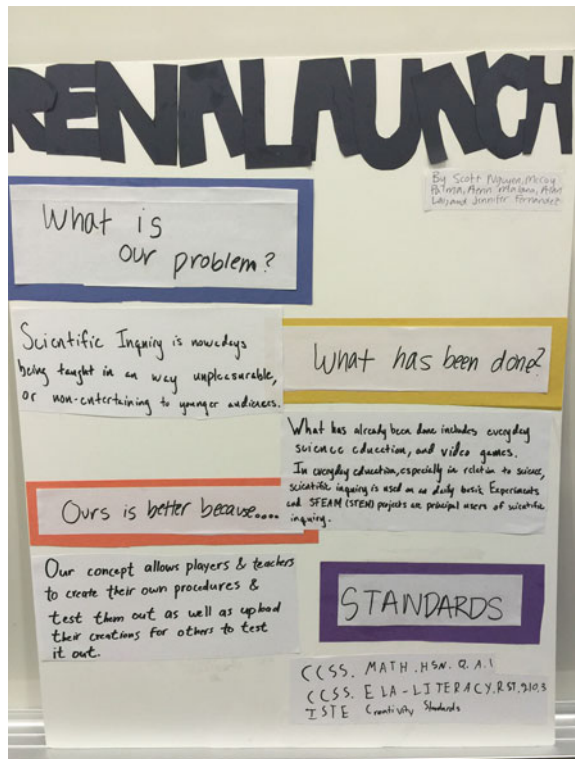 RENALAUNCH
By Scott Nguyen, McCoy
Palma, Annn Malana, Alan
Lai, and Jennifer Fernandez
What is
our problem?
Scientific Inquiry is nowadays
being taught in an way unpleasurable,
or non-entertaining to younger audiences.
What has been done?
What has already been done includes everyday
science education, and video games.
In everyday education, especially in relation to science,
scientific inquiry is used on an daily basis. Experiments
and STEAM (STEM) projects are principal users of scientific
inquiry.
Ours is better because....
Our concept allows players & teachers
to create their own procedures &
test them out as well as upload
their creations for others to test
it out.
STANDARDS
CCSS. MATH.HSN.Q.A.1
CCSS. ELA-LITERACY.RST.9-10.3
ISTE Creativity Standards